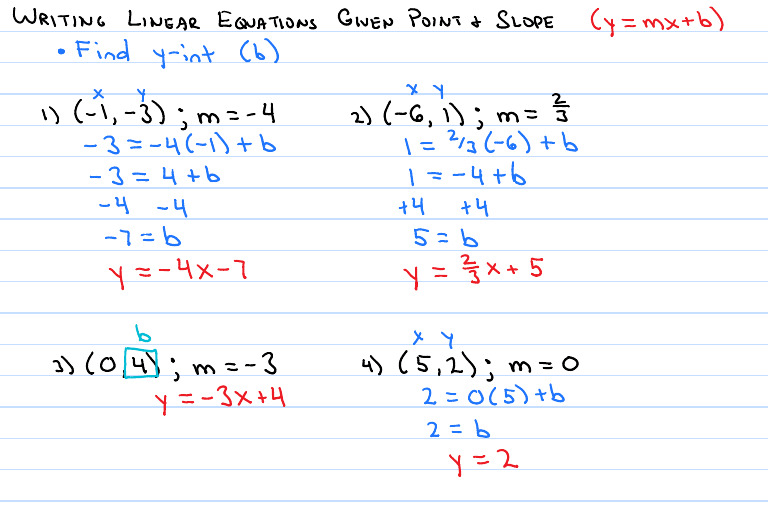 WRITING LINEAR EQUATIONS GIVEN POINT & SLOPE (y=mx+b)
• Find y-int (b)
x y
1) (-1, -3) ; m = -4
-3 = -4(-1) + b
-3 = 4 + b
-4 -4
-7 = b
y = -4x - 7
x y
2) (-6, 1) ; m = 2/3
1 = 2/3(-6) + b
1 = -4 + b
+4 +4
5 = b
y = 2/3 x + 5
b
3) (0, 4) ; m = -3
y = -3x + 4
x y
4) (5, 2) ; m = 0
2 = 0(5) + b
2 = b
y = 2